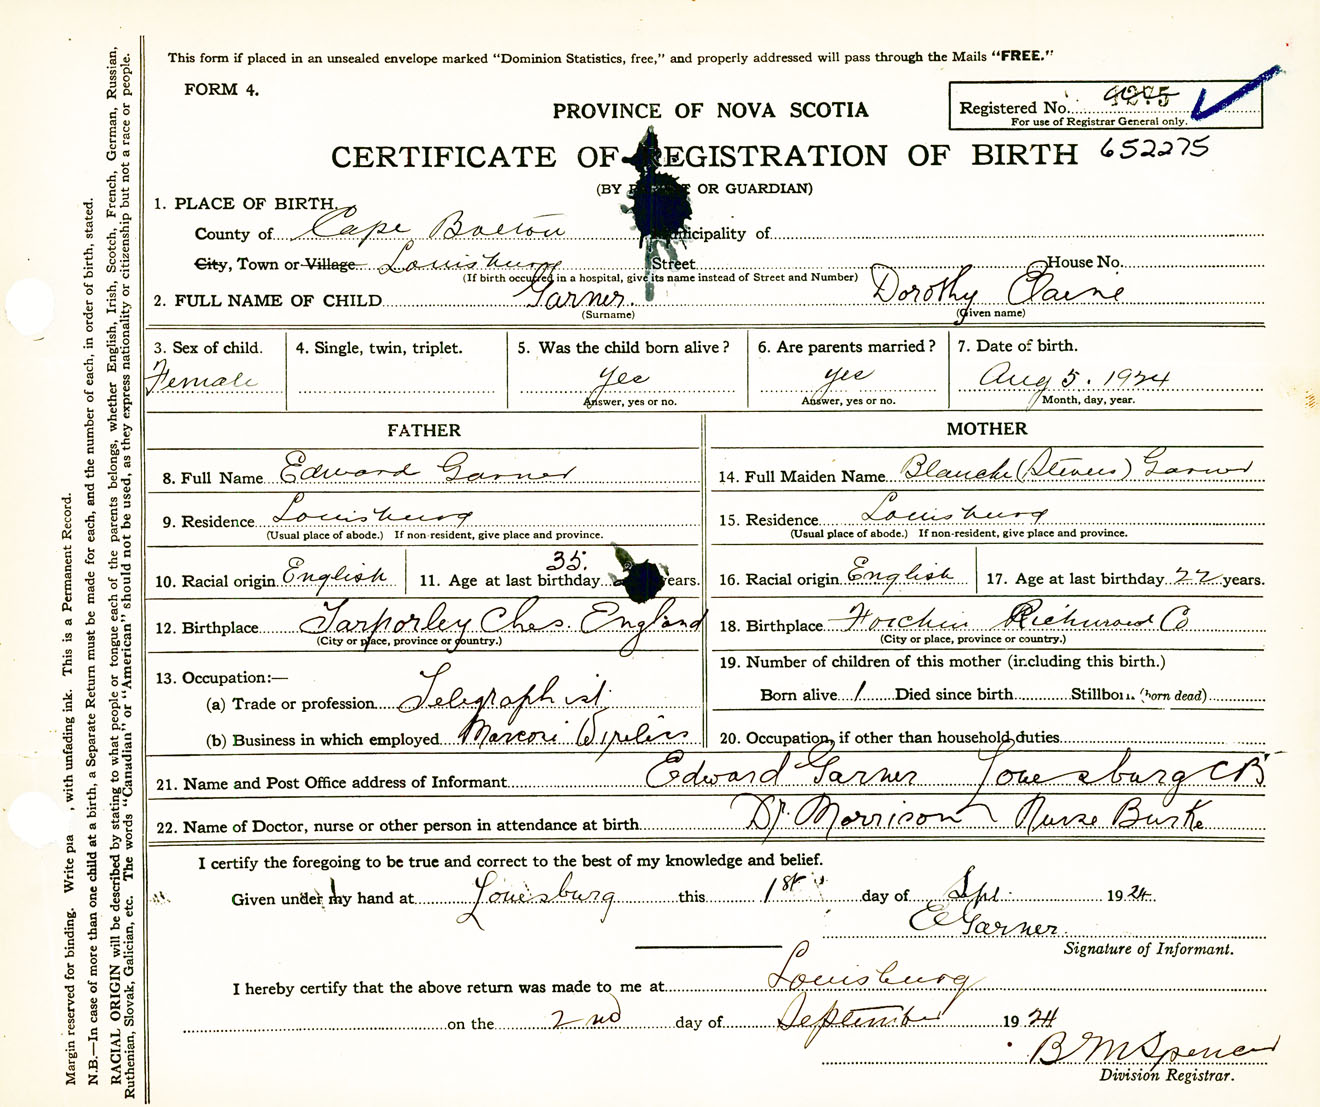 This form if placed in an unsealed envelope marked "Dominion Statistics, free," and properly addressed will pass through the Mails "FREE."
FORM 4.
PROVINCE OF NOVA SCOTIA
Registered No.
For use of Registrar General only.
CERTIFICATE OF REGISTRATION OF BIRTH 652275
(BY OR GUARDIAN)
1. PLACE OF BIRTH.
County of Cape Breton Municipality of
City, Town or Village Louisburg Street House No.
(If birth occurred in a hospital, give its name instead of Street and Number)
2. FULL NAME OF CHILD Garner. Dorothy Elaine
(Surname) (Given name)
3. Sex of child. 4. Single, twin, triplet. 5. Was the child born alive? 6. Are parents married? 7. Date of birth.
Female yes yes Aug 5. 1924
Answer, yes or no. Answer, yes or no. Month, day, year.
FATHER MOTHER
8. Full Name Edward Garner 14. Full Maiden Name Blanche (Stevens) Garner
9. Residence Louisburg 15. Residence Louisburg
(Usual place of abode.) If non-resident, give place and province. (Usual place of abode.) If non-resident, give place and province.
10. Racial origin English 11. Age at last birthday 35. years. 16. Racial origin English 17. Age at last birthday 22 years.
12. Birthplace Tarporley Ches. England 18. Birthplace Richmond Co
(City or place, province or country.) (City or place, province or country.)
13. Occupation:— 19. Number of children of this mother (including this birth.)
(a) Trade or profession Telegraphist Born alive 1 Died since birth Stillborn (born dead)
(b) Business in which employed Marconi Wireless 20. Occupation, if other than household duties
21. Name and Post Office address of Informant Edward Garner Louisburg CB
22. Name of Doctor, nurse or other person in attendance at birth Dr. Morrison Nurse Burke
I certify the foregoing to be true and correct to the best of my knowledge and belief.
Given under my hand at Louisburg this 1st day of Sept. 1924.
E Garner.
Signature of Informant.
I hereby certify that the above return was made to me at Louisburg
on the 2nd day of September 1924
B M Spencer
Division Registrar.
Margin reserved for binding. Write , with unfading ink. This is a Permanent Record.
N.B.—In case of more than one child at a birth, a Separate Return must be made for each, and the number of each, in order of birth, stated.
RACIAL ORIGIN will be described by stating to what people or tongue each of the parents belongs, whether English, Irish, Scotch, French, German, Russian,
Ruthenian, Slovak, Galician, etc. The words "Canadian" or "American" should not be used, as they express nationality or citizenship but not a race or people.